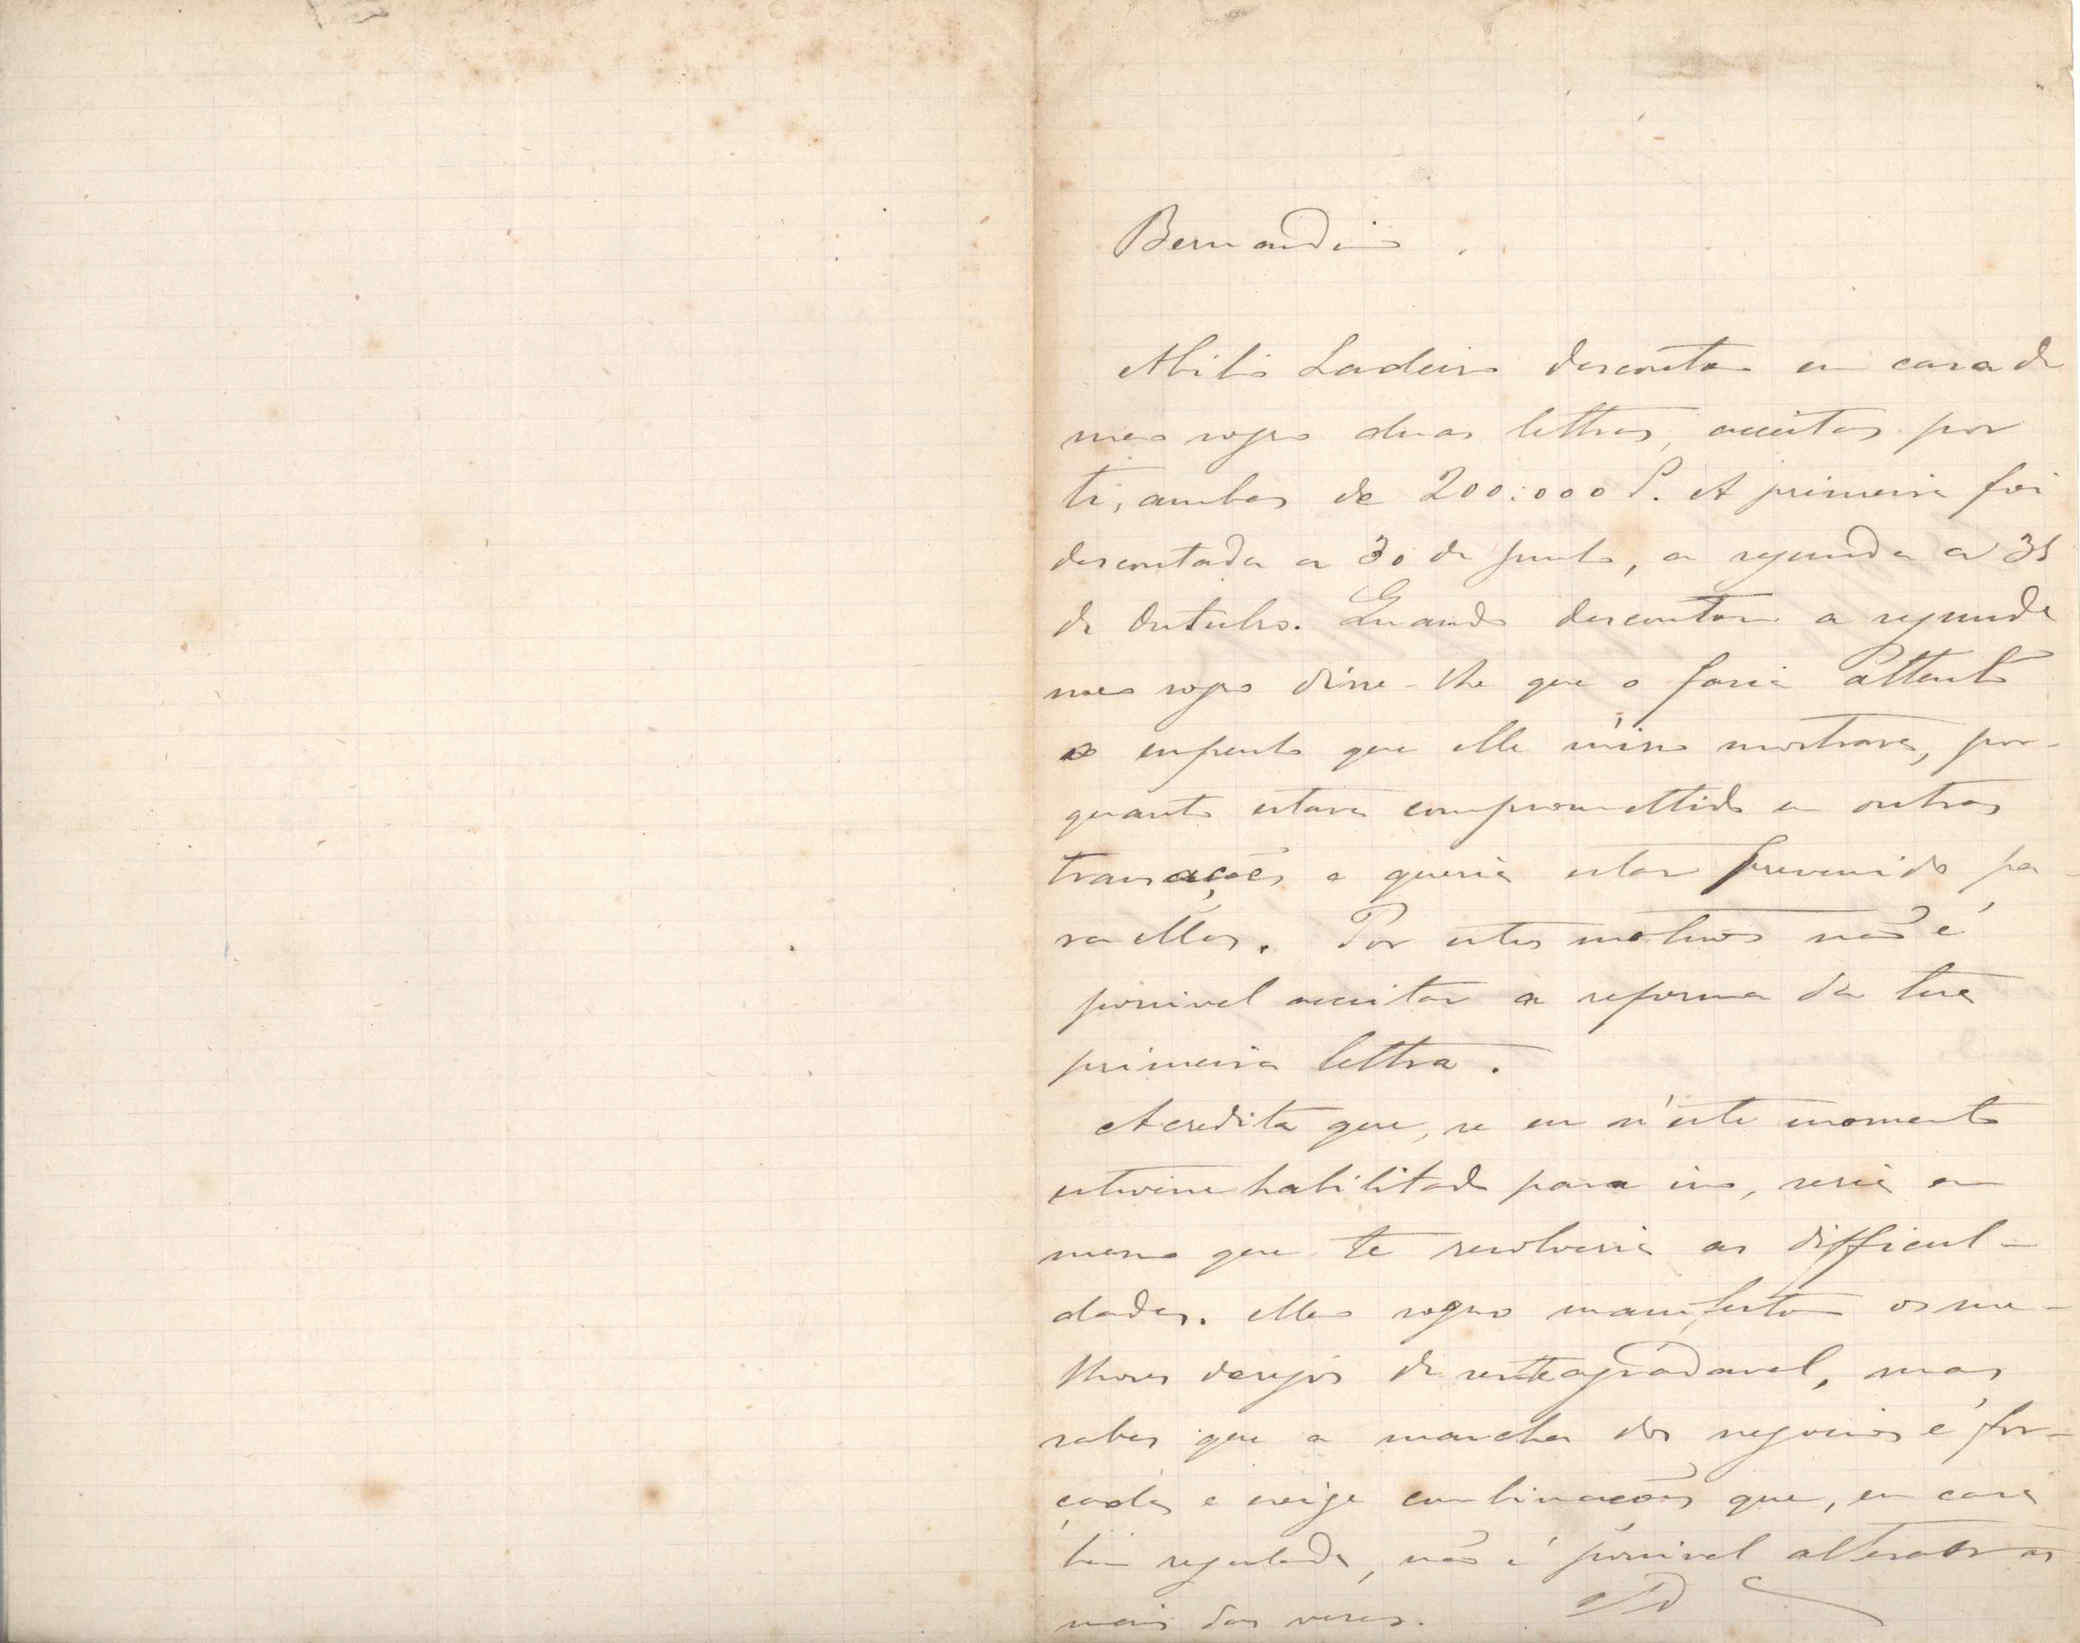 Bernardino
Abilio Ladeiro descontou em casa de
meu sogro duas lettras, acceitas por
ti, ambas de 200:000 r. A primeira foi
descontada a 30 de Junho, a segunda a 31
de Outubro. Quando descontou a segunda
meu sogro disse-lhe que o faria attento
o empenho que elle n'isso mostrava, por-
quanto estava compromettido em outras
transações e queria estar prevenido pa-
ra ellas. Por estes motivos não é
possivel acceitar a reforma da tua
primeira lettra.
Acredita que, se eu n'este momento
estivesse habilitado para isso, seria eu
mesmo que te resolveria as difficul-
dades. Meu sogro manifestou os me-
lhores desejos de ser-te agradavel, mas
sabes que a marcha dos negocios é for-
çada e exige combinações que, em casa
bem regulada, não é possivel alterar as
mais das vezes.